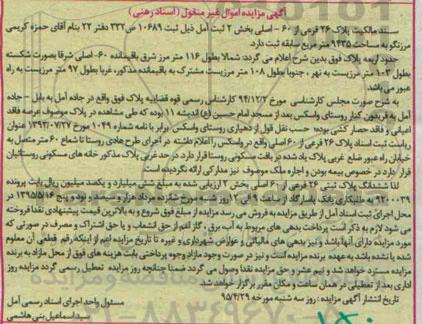 آگهی مزایده اموال غیر منقول (اسناد رهنی)
سند مالکیت پلاک ۲۶ فرعی از ۶۰ - اصلی بخش ۲ ثبت آمل ذیل ثبت ۱۰۶۸۹ ص ۳۳۲ دفتر ۲۲ بنام آقای حمزه کریمی
مرزنگو به مساحت ۹۴۳۵ متر مربع سابقه ثبت دارد.
حدود اربعه پلاک فوق بدین شرح اعلام می گردد: شمالا بطول ۱۱۶ متر مرز شرق باقیمانده ۶۰ - اصلی شرقا بصورت شکسته
بطول ۱۰۳ متر مرزیست به نهر، جنوبا بطول ۱۰۸ متر مرزیست مشترک به باقیمانده مذکور، غربا بطول ۹۷ متر مرزیست به راه
عبور می باشد.
به شرح صورت مجلس کارشناسی مورخ ۹۴/۱۲/۲ کارشناس رسمی قوه قضاییه پلاک فوق واقع در جاده آمل به بابل - جاده
آمل به فریدون کنار روستای واسکس بعد از مسجد امام حسین (ع) اندیشه ۱۱ بوده که طی مشاهده در پلاک موصوف عرصه فاقد
اعیانی و فاقد حصار کشی بوده؛ حسب نقل قول از دهیاری روستای واسکس برابر با نامه شماره ۱۰۴۹ مورخ ۱۳۹۳/۰۷/۲۷ عنوان
ریاست ثبت اسناد پلاک ۲۶ فرعی از ۶۰ اصلی واقع در واسکس را اعلام داشته در اجرای طرح هادی روستا تا شعاع ۶۰ متر متصل به
خیابان راه عبور ضلع غربی پلاک یاد شده در بافت مسکونی روستا قرار دارد. در حد غربی پلاک مذکور خانه های مسکونی روستائیان
قرار دارد در خصوص بیمه بودن و اجاره ملک موصوف نیز مدارکی ارائه نگردیده است.
لذا ششدانگ پلاک ثبتی ۲۶ فرعی از ۶۰ اصلی بخش ۲ ارزیابی شده به مبلغ شش میلیارد و یکصد میلیون ریال بابت پرونده
۹۲۰۰۰۳۹ به طلبکاری بانک پاسارگاد از ساعت ۹ الی ۱۲ روز شنبه مورخ شانزده مرداد هزار و سیصد و نود و پنج ۱۳۹۵/۵/۱۶ در
محل اجرای ثبت اسناد آمل از طریق مزایده به فروش می رسد مزایده از مبلغ فوق شروع و به بالاترین قیمت پیشنهادی نقدا فروخته
می شود لازم به ذکر است پرداخت بدهی های مربوط به آب برق، گاز اعم از حق انشعاب و یا حق اشتراک و مصرف در صورتی که
مورد مزایده دارای آنها باشد و نیز بدهی های مالیاتی و عوارض شهرداری و غیره تا تاریخ مزایده اعم از اینکه رقم قطعی آن معلوم
شده یا نشده باشد به عهده برنده مزایده است و نیز در صورت وجود مازاد وجوه پرداختی بابت هزینه های فوق از محل مازاد به برنده
مزایده مسترد خواهد شد و نیم عشر و حق مزایده نقدا وصول می گردد ضمنا چنانچه روز مزایده تعطیل رسمی گردد مزایده روز
اداری بعد از تعطیلی در همان ساعت و مکان مقرر برگزار خواهد شد.
تاریخ انتشار آگهی مزایده: روز سه شنبه مورخه ۹۵/۴/۲۹
مسئول واحد اجرای اسناد رسمی آمل
سید اسماعیل بنی هاشمی